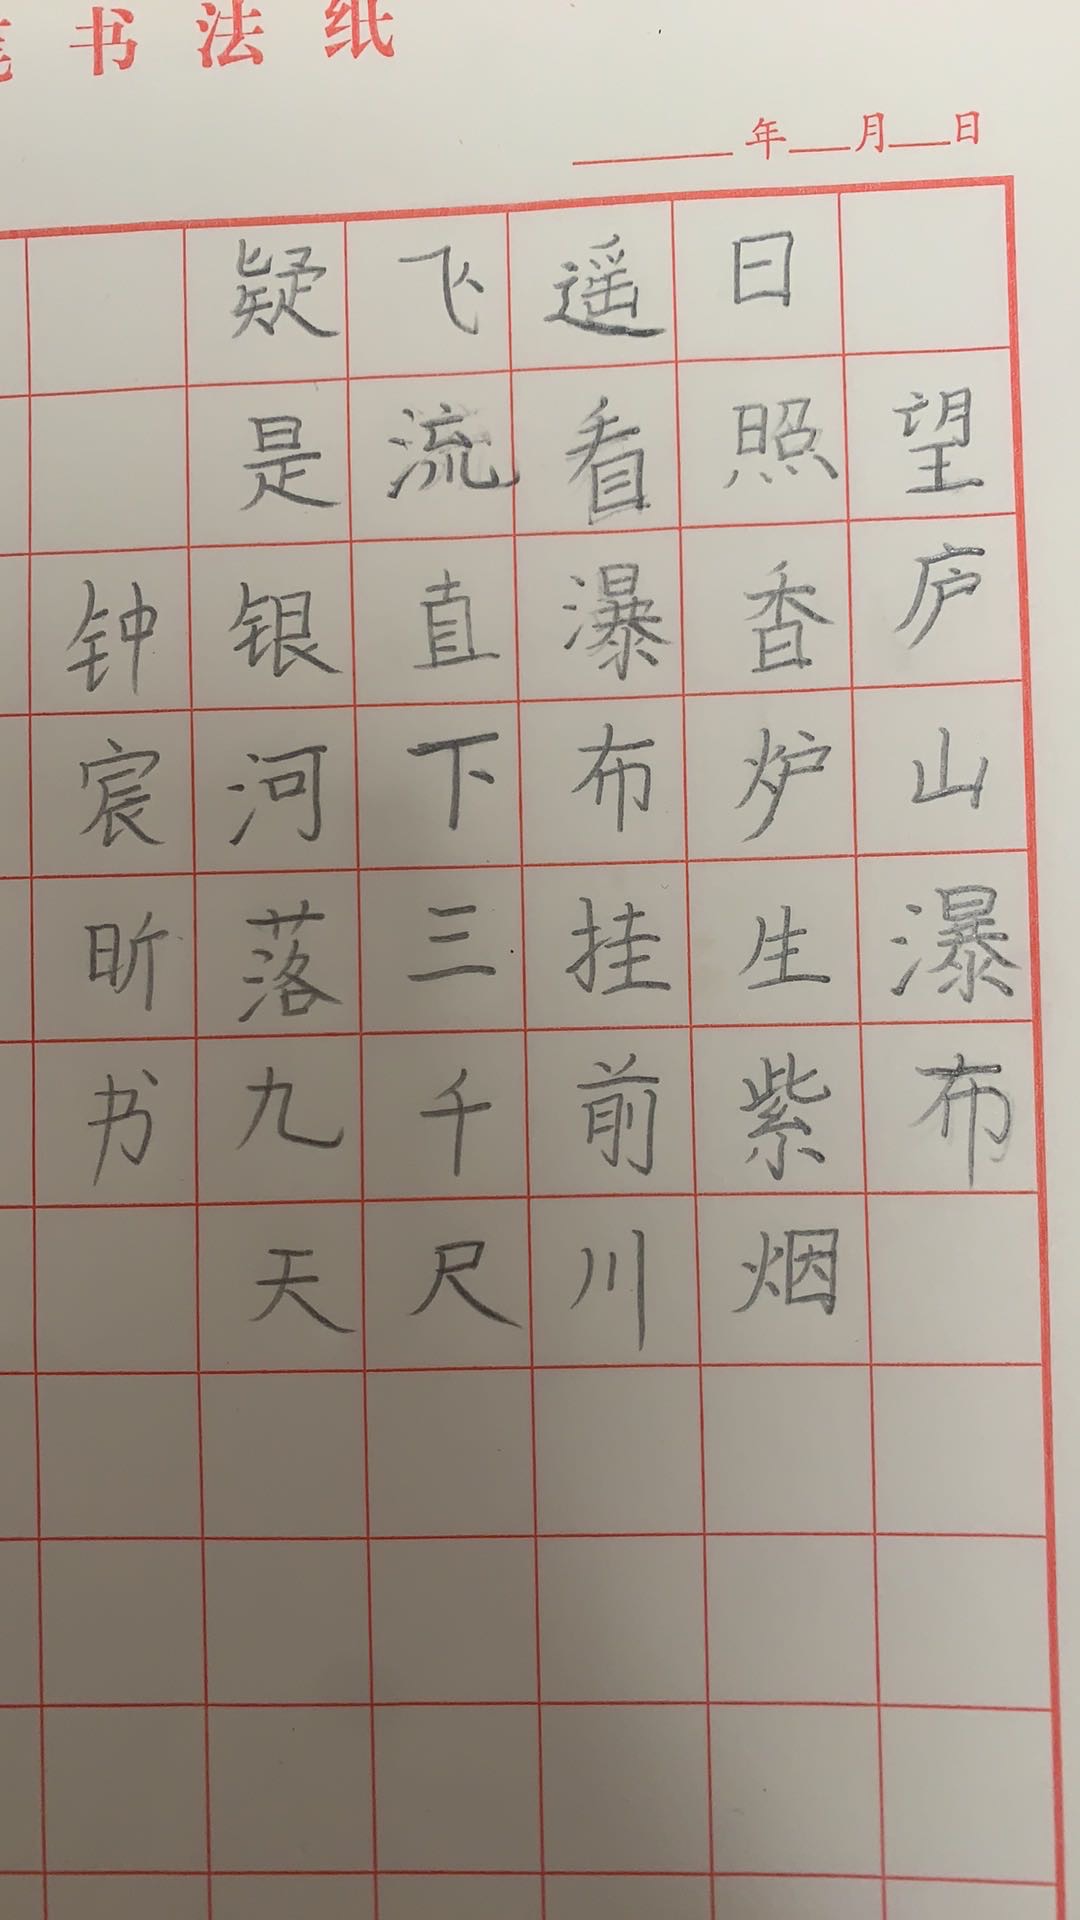 书法纸
年 月 日
望庐山瀑布
日照香炉生紫烟
遥看瀑布挂前川
飞流直下三千尺
疑是银河落九天
钟宸昕书